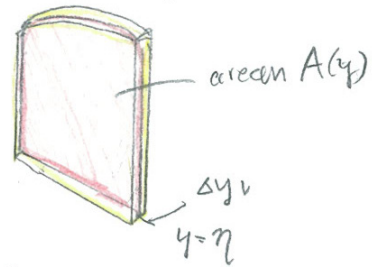 arean A(y)
Δy
y = η